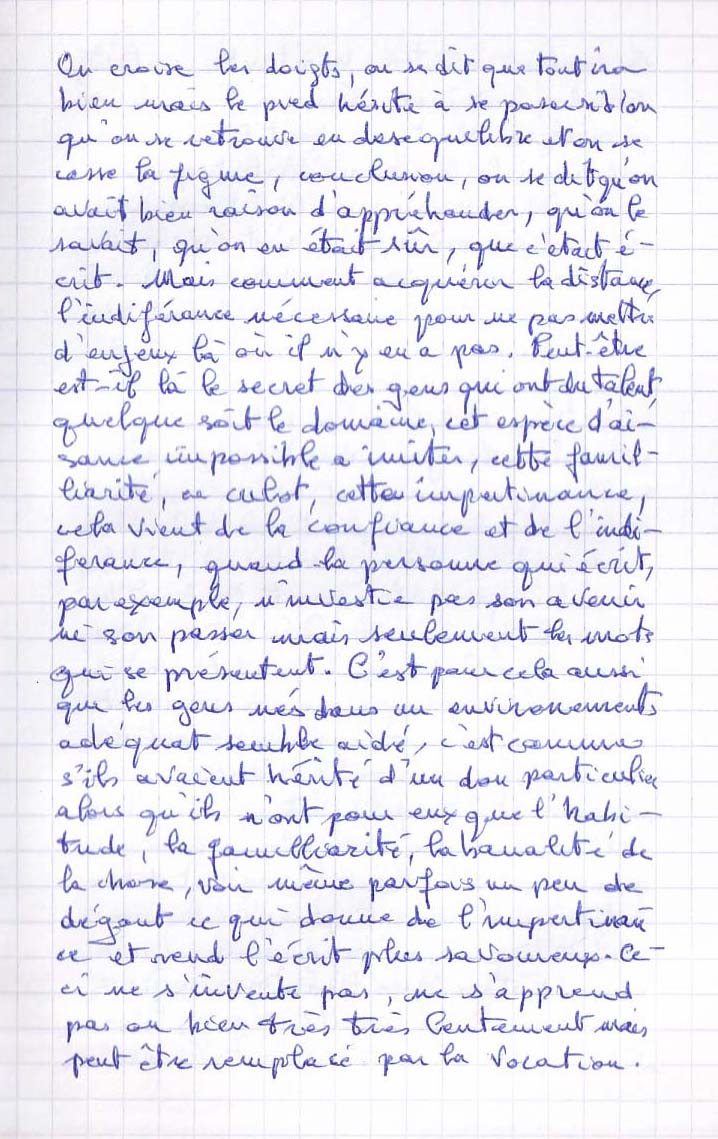 On croise les doigts, on se dit que tout ira
bien mais le pied hésite à se poser si bien
qu'on se retrouve en desequelibre et on se
casse la figure, conclusion, on se dit qu'on
avait bien raison d'appréhender, qu'on le
savait, qu'on en était sûr, que c'était é-
crit. Mais comment acquérir la distance,
l'indiférance nécessaire pour ne pas mettre
d'enjeux là où il n'y en a pas. Peut-être
est-il là le secret des gens qui ont du talent,
quelque soit le domaine, cet espèce d'ai-
sance impossible a imiter, cette famil-
liarité, ce culot, cette impertinance,
cela vient de la confiance et de l'indi-
ferance, quand la personne qui écrit,
par exemple, n'investie pas son avenir
ni son passer mais seulement les mots
qui se présentent. C'est pour cela aussi
que les gens nés dans un environements
adéquat semble aidé, c'est comme
s'ils avaient hérité d'un don particulier
alors qu'ils n'ont pour eux que l'habi-
tude, la familliarité, la banalité de
la chose, voir même parfois un peu de
dégout ce qui donne de l'impertinan
ce et rend l'écrit plus savoureux. Ce-
ci ne s'invente pas, ne s'apprend
pas ou bien très très lentement mais
peut être remplacé par la vocation.